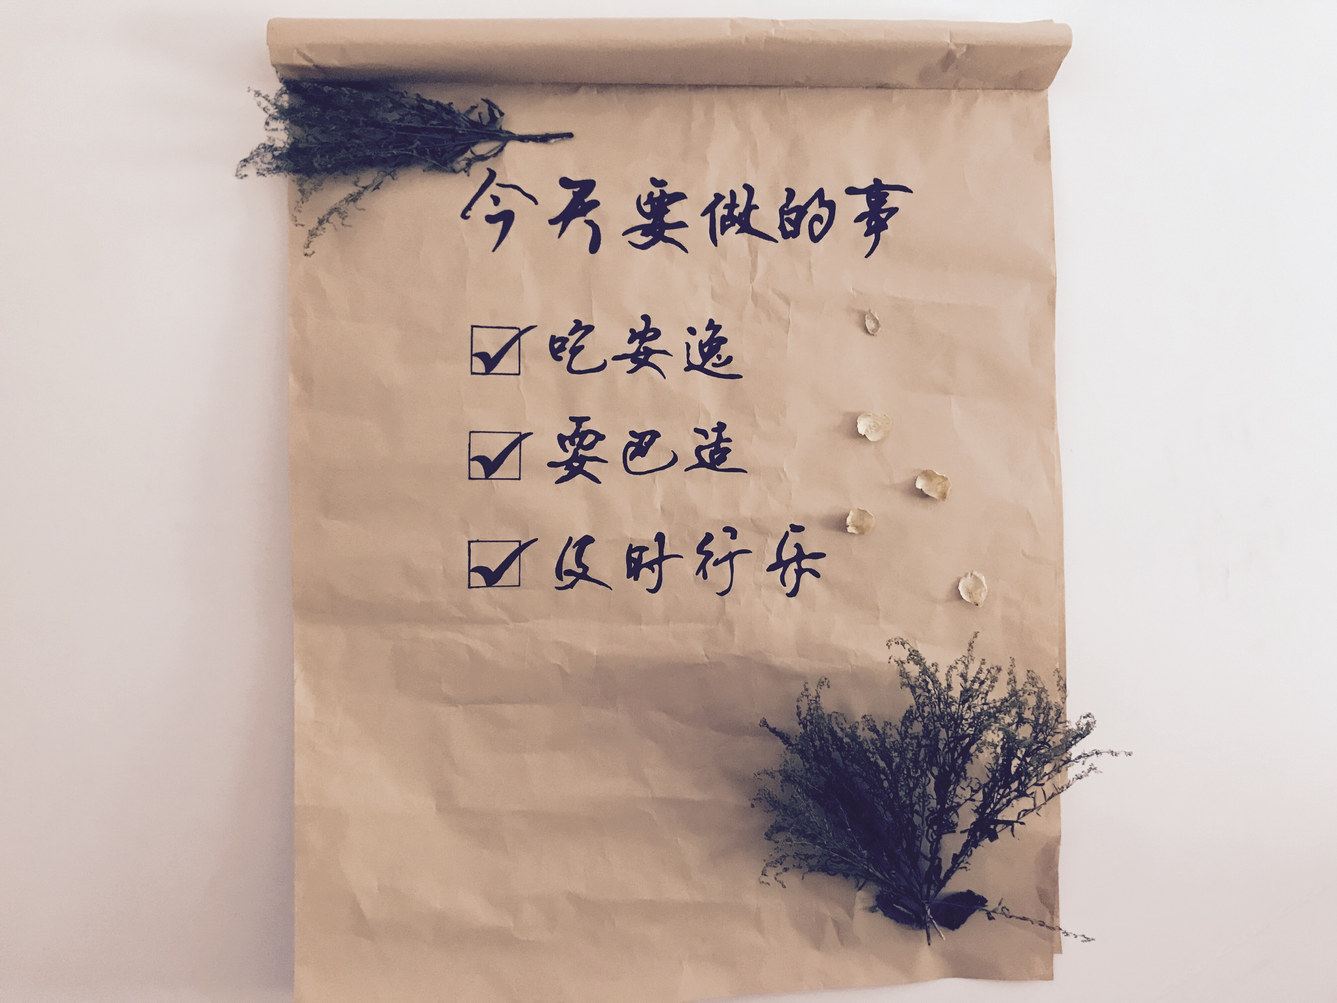 今天要做的事
吃安逸
耍巴适
及时行乐